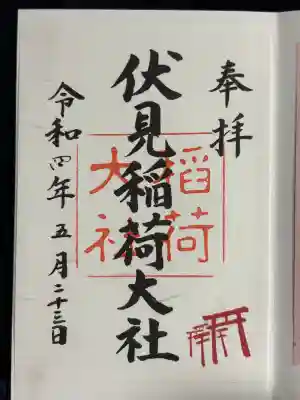 奉拝
伏見稲荷大社
令和四年五月二十三日
稲荷
大社